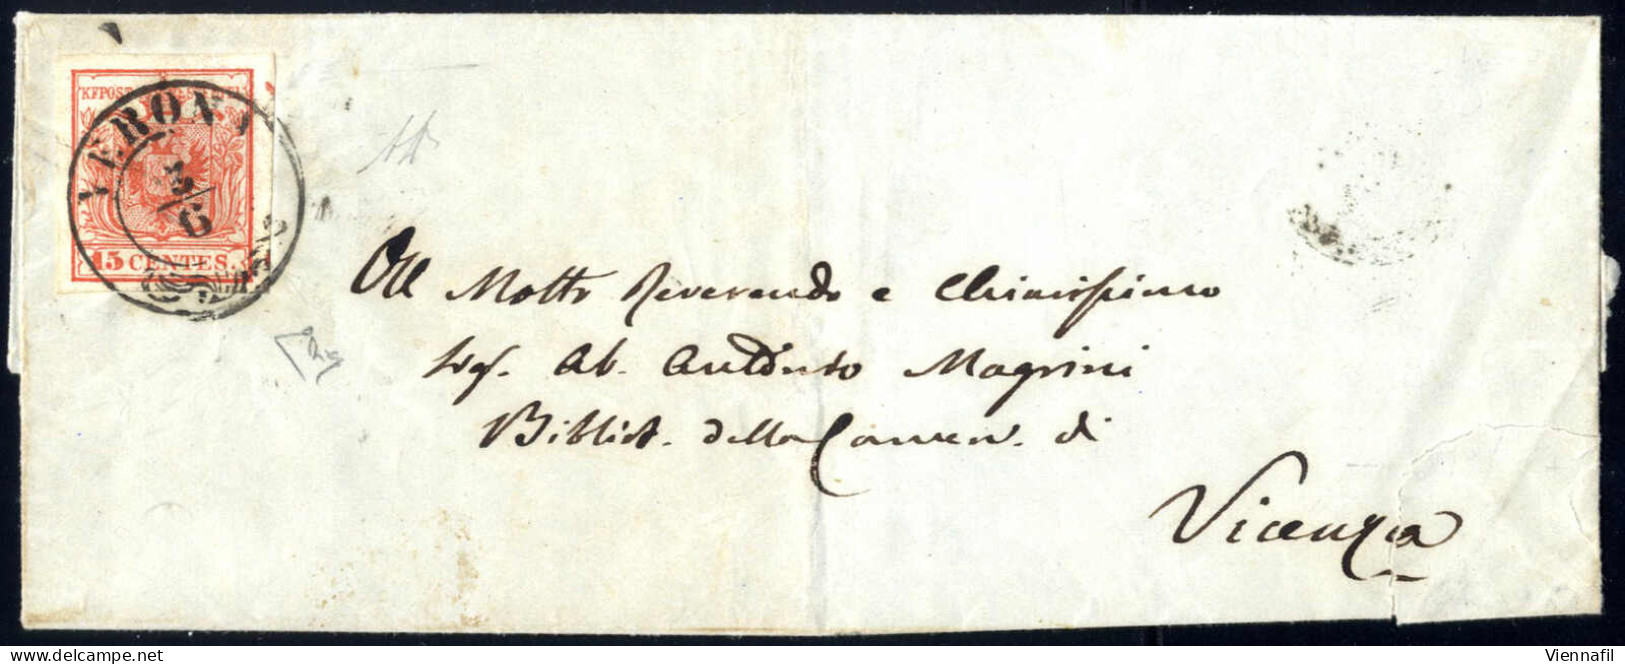 KKPOST
VERONA
3/6
15 CENTES.
All Molto Reverendo e Chiarissimo
Sig. Ab. Antonio Magrini
Bibliot. della Comun. di
Vicenza
delcampe.net
Viennafil